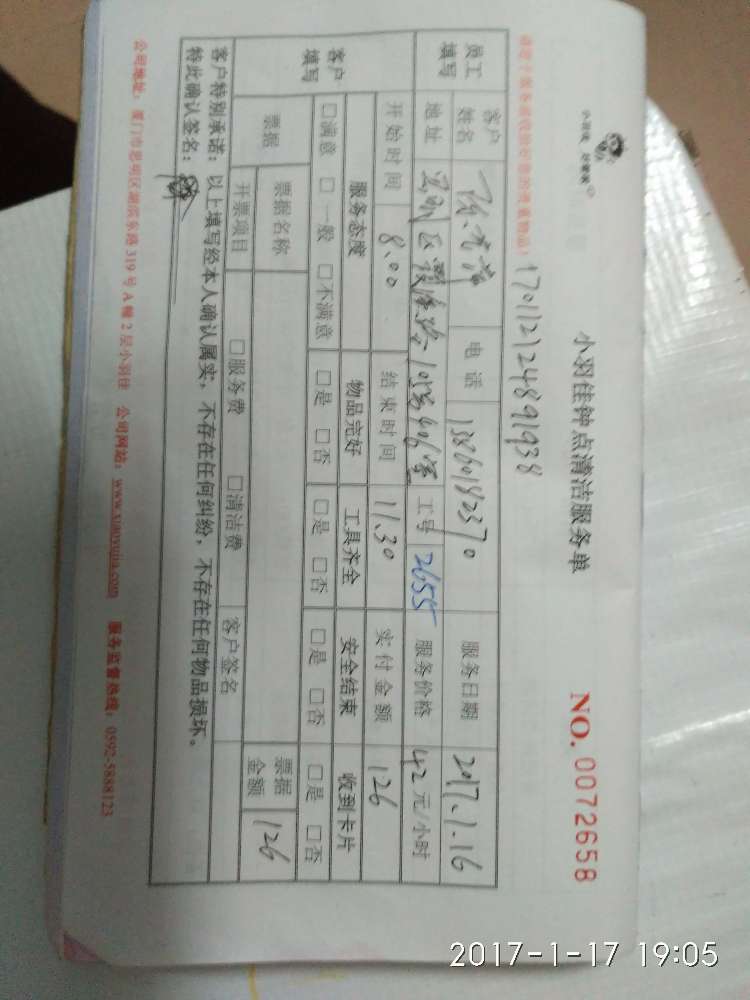 小羽佳 好管家
小羽佳钟点清洁服务单
NO. 0072658
170112124891938
员工填写 客户姓名 电话 13860182370 服务日期 2017.1.16
地址 105号406室 工号 2655 服务价格 42元/小时
开始时间 8.00 结束时间 11.30 实付金额 126
客户填写 服务态度 物品完好 工具齐全 安全结束 收到卡片
□满意 □一般 □不满意 □是 □否 □是 □否 □是 □否 □是 □否
票据 票据名称 票据金额 126
开票项目 □服务费 □清洁费 客户签名
客户特别承诺:以上填写经本人确认属实,不存在任何纠纷,不存在任何物品损坏。
特此确认签名:
公司地址:厦门市思明区湖滨东路319号A幢2层小羽佳 公司网站:www.xiaoyujia.com 服务监督热线:0592-5888123
2017-1-17 19:05